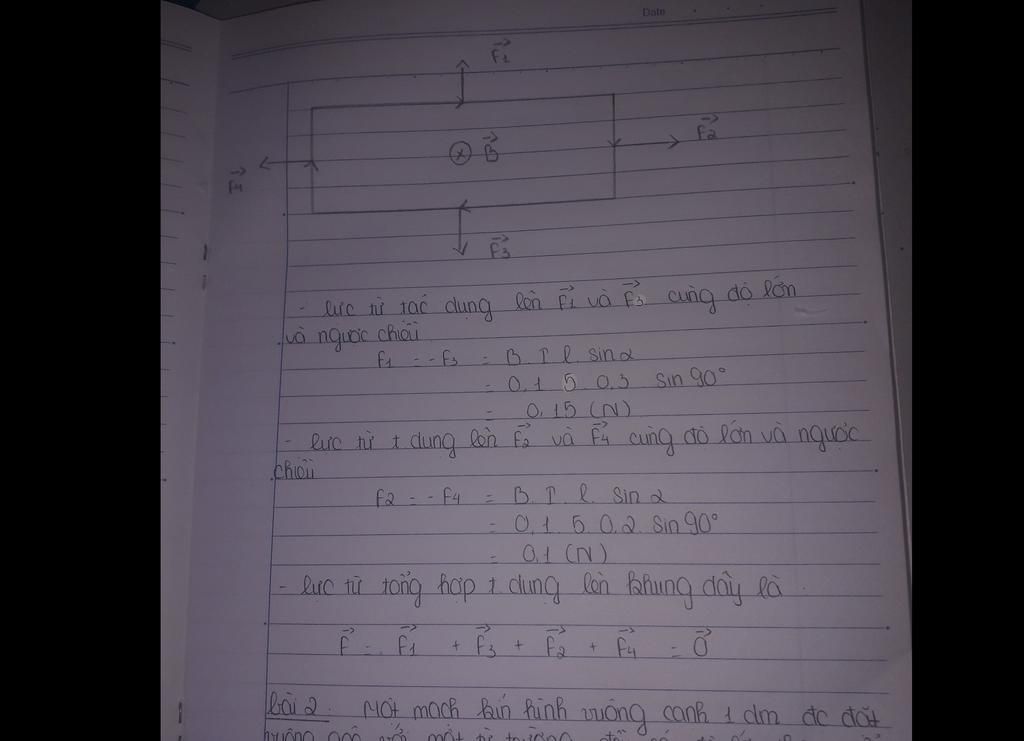 Date
F1
F2
B
F4
F3
- lực từ tác dụng lên F1 và F3 cùng độ lớn
và ngược chiều
F1 = -F3 = B. I l sinα
= 0,1 5 0,3 sin 90°
= 0,15 (N)
- lực từ t dụng lên F2 và F4 cùng độ lớn và ngược
chiều
F2 = -F4 = B. I. l. sin α
= 0,1 5 0,2 sin 90°
= 0,1 (N)
- lực từ tổng hợp t dụng lên khung dây là
F = F1 + F3 + F2 + F4 = 0
bài 2. Một mạch kín hình vuông cạnh 1 dm đc đặt